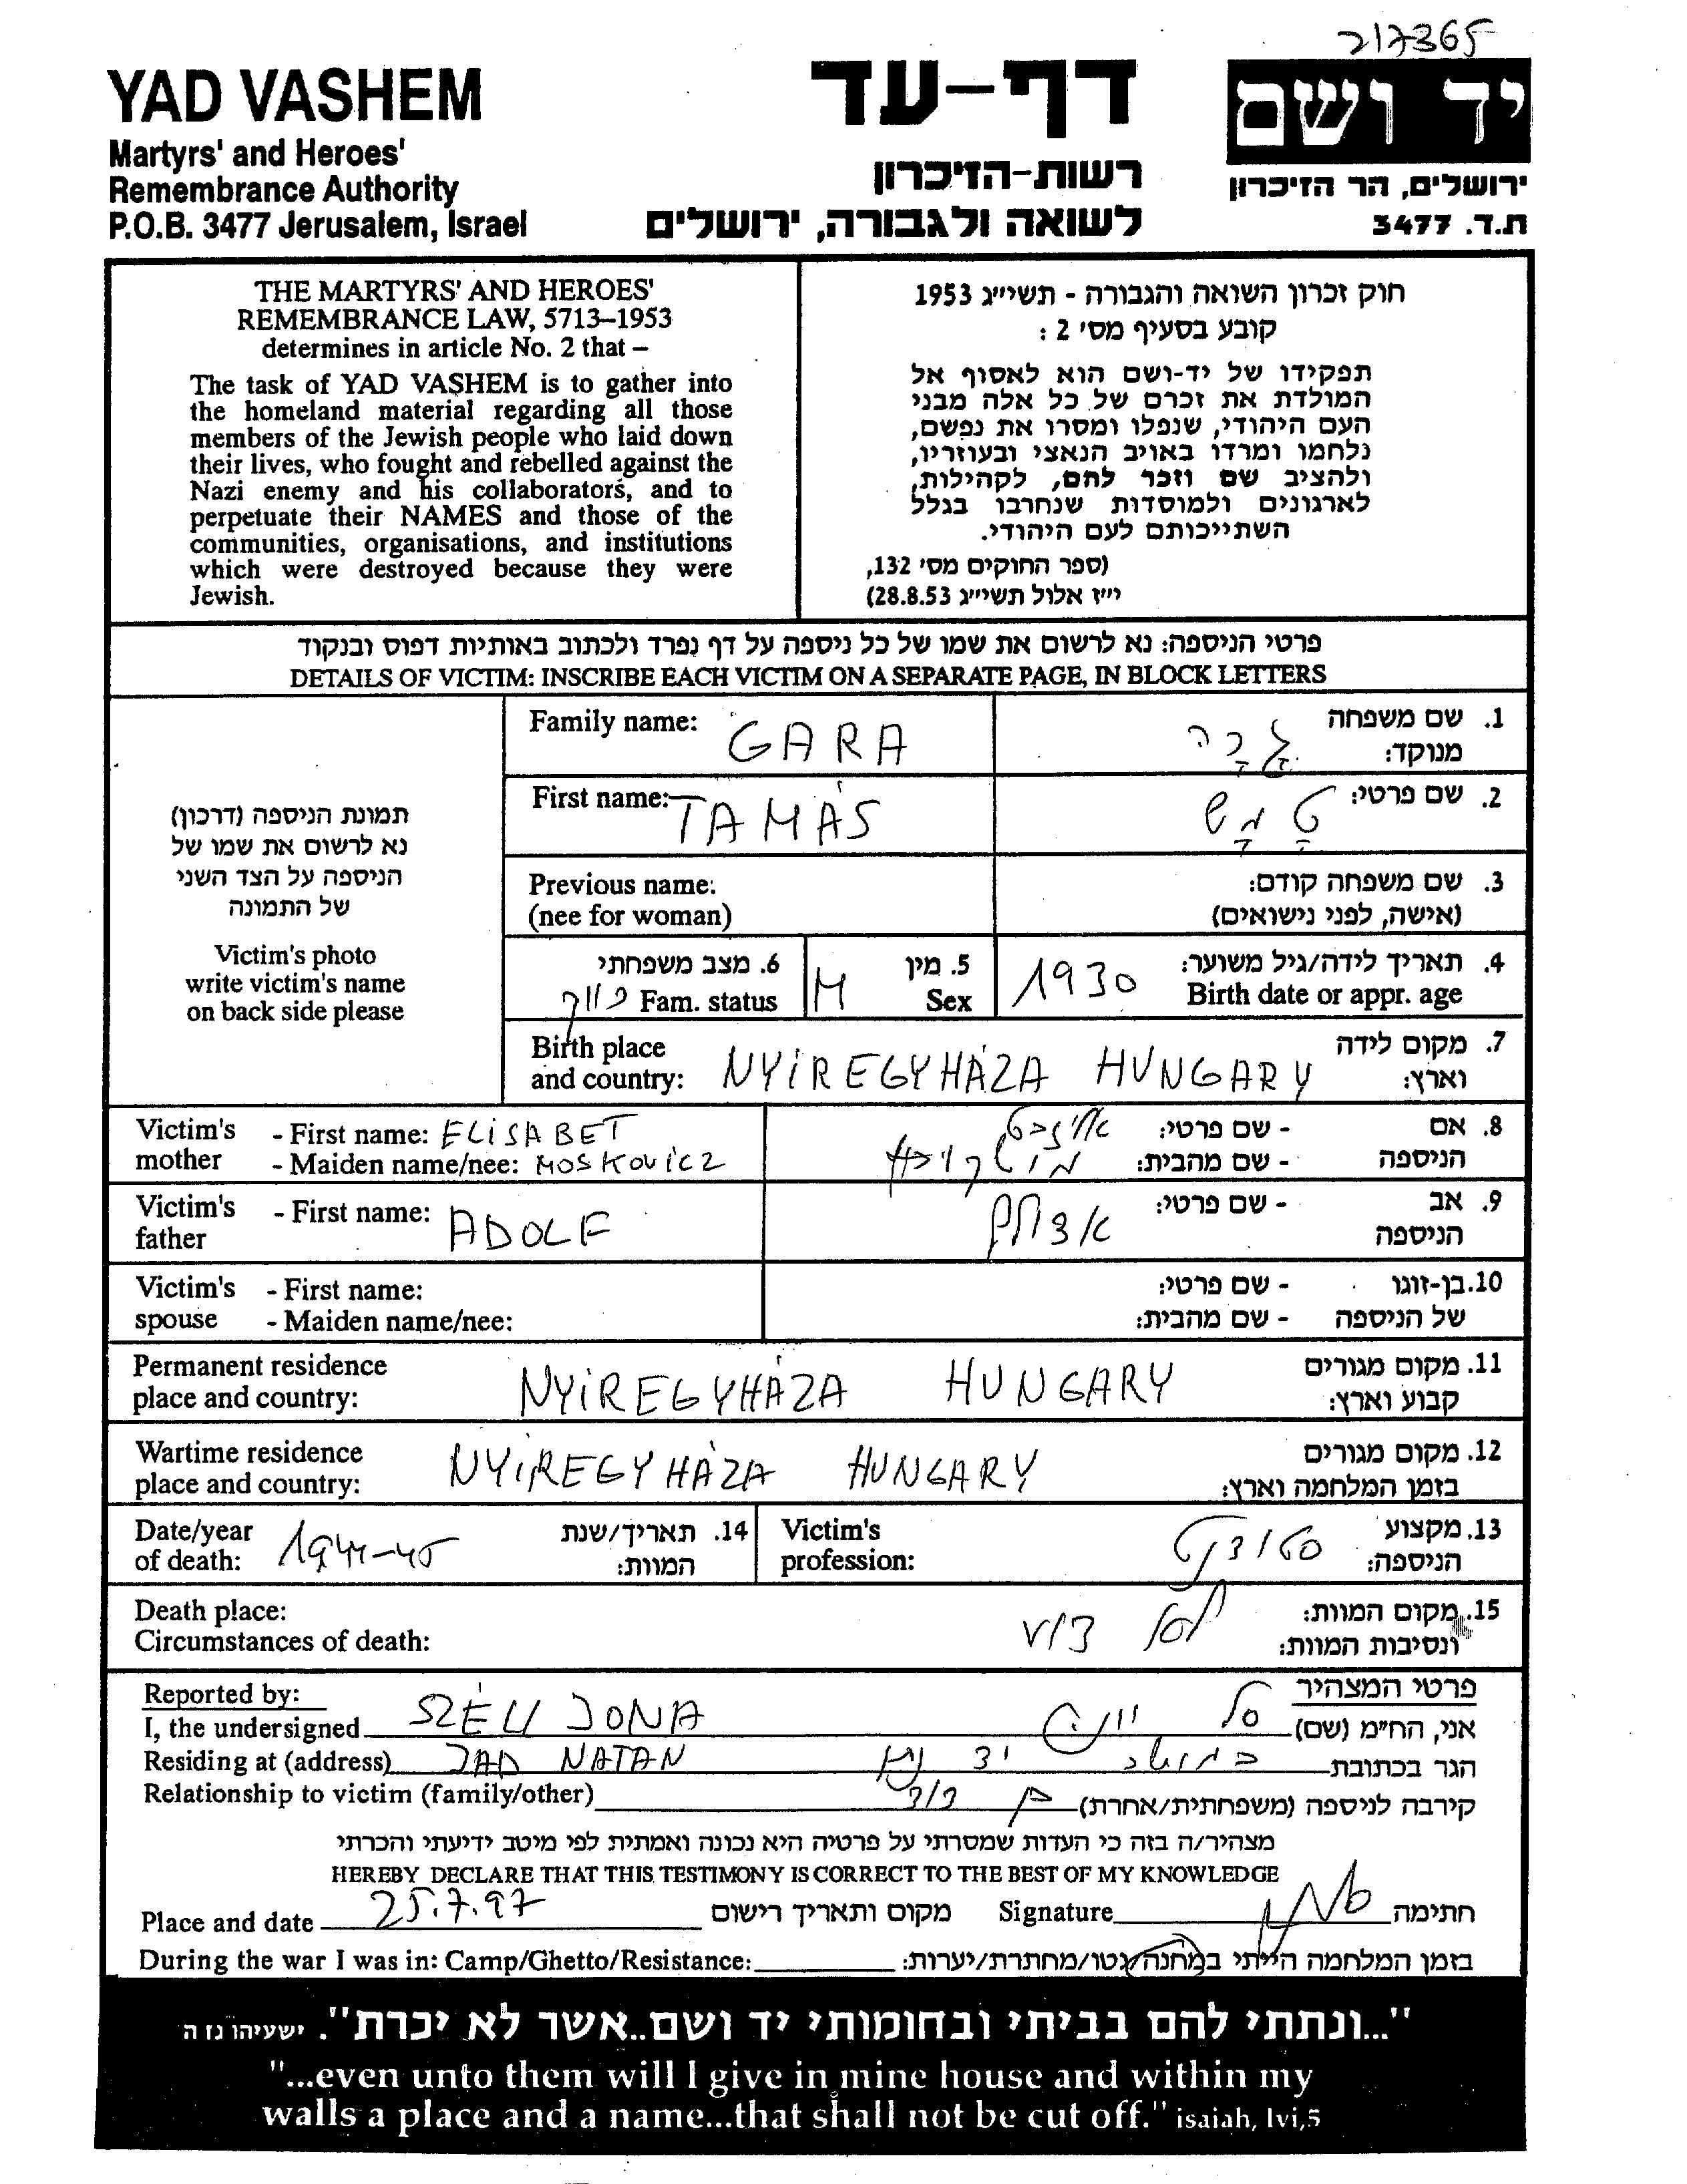 217365
YAD VASHEM
Martyrs' and Heroes'
Remembrance Authority
P.O.B. 3477 Jerusalem, Israel
דף-עד
רשות-הזיכרון
לשואה ולגבורה, ירושלים
יד ושם
ירושלים, הר הזיכרון
ת.ד. 3477
THE MARTYRS' AND HEROES'
REMEMBRANCE LAW, 5713–1953
determines in article No. 2 that –
The task of YAD VASHEM is to gather into
the homeland material regarding all those
members of the Jewish people who laid down
their lives, who fought and rebelled against the
Nazi enemy and his collaborators, and to
perpetuate their NAMES and those of the
communities, organisations, and institutions
which were destroyed because they were
Jewish.
חוק זכרון השואה והגבורה - תשי״ג 1953
קובע בסעיף מס׳ 2 :
תפקידו של יד-ושם הוא לאסוף אל
המולדת את זכרם של כל אלה מבני
העם היהודי, שנפלו ומסרו את נפשם,
נלחמו ומרדו באויב הנאצי ובעוזריו,
ולהציב שם וזכר להם, לקהילות,
לארגונים ולמוסדות שנחרבו בגלל
השתייכותם לעם היהודי.
(ספר החוקים מס׳ 132,
י״ז אלול תשי״ג 28.8.53)
פרטי הניספה: נא לרשום את שמו של כל ניספה על דף נפרד ולכתוב באותיות דפוס ובנקוד
DETAILS OF VICTIM: INSCRIBE EACH VICTIM ON A SEPARATE PAGE, IN BLOCK LETTERS
תמונת הניספה (דרכון)
נא לרשום את שמו של
הניספה על הצד השני
של התמונה
Victim's photo
write victim's name
on back side please
Family name: GARA
1. שם משפחה
מנוקד: גָרָה
First name: TAMÁS
2. שם פרטי: טָמָש
Previous name:
(nee for woman)
3. שם משפחה קודם:
(אישה, לפני נישואים)
4. תאריך לידה/גיל משוער:
Birth date or appr. age 1930
5. מין
Sex M
6. מצב משפחתי
Fam. status רווק
Birth place
and country: NYÍREGYHÁZA HUNGARY
7. מקום לידה
וארץ:
Victim's mother - First name: ELISABET
- Maiden name/nee: MOSKOVICZ
8. אם - שם פרטי: אליזבט
הניספה - שם מהבית: מושקוביץ
Victim's father - First name: ADOLF
9. אב - שם פרטי: אדולף
הניספה
Victim's - First name:
spouse - Maiden name/nee:
10. בן-זוגו - שם פרטי:
של הניספה - שם מהבית:
Permanent residence
place and country: NYÍREGYHÁZA HUNGARY
11. מקום מגורים
קבוע וארץ:
Wartime residence
place and country: NYÍREGYHÁZA HUNGARY
12. מקום מגורים
בזמן המלחמה וארץ:
Date/year
of death: 1944-45
14. תאריך/שנת
המוות:
Victim's
profession:
13. מקצוע
הניספה: סטודנט
Death place:
Circumstances of death:
15. מקום המוות:
ונסיבות המוות:
Reported by:
I, the undersigned SZÉLL JONA
פרטי המצהיר
אני, הח״מ (שם) סל יונה
Residing at (address) JAD NATAN
הגר בכתובת יד נתן
Relationship to victim (family/other)
קירבה לניספה (משפחתית/אחרת) בן דוד
מצהיר/ה בזה כי העדות שמסרתי על פרטיה היא נכונה ואמתית לפי מיטב ידיעתי והכרתי
HEREBY DECLARE THAT THIS TESTIMONY IS CORRECT TO THE BEST OF MY KNOWLEDGE
Place and date 25.7.97 מקום ותאריך רישום
Signature חתימה
During the war I was in: Camp/Ghetto/Resistance:
בזמן המלחמה הייתי במחנה/גטו/מחתרת/יערות:
"...ונתתי להם בביתי ובחומותי יד ושם..אשר לא יכרת". ישעיהו נז ה
"...even unto them will I give in mine house and within my
walls a place and a name...that shall not be cut off." isaiah, lvi,5